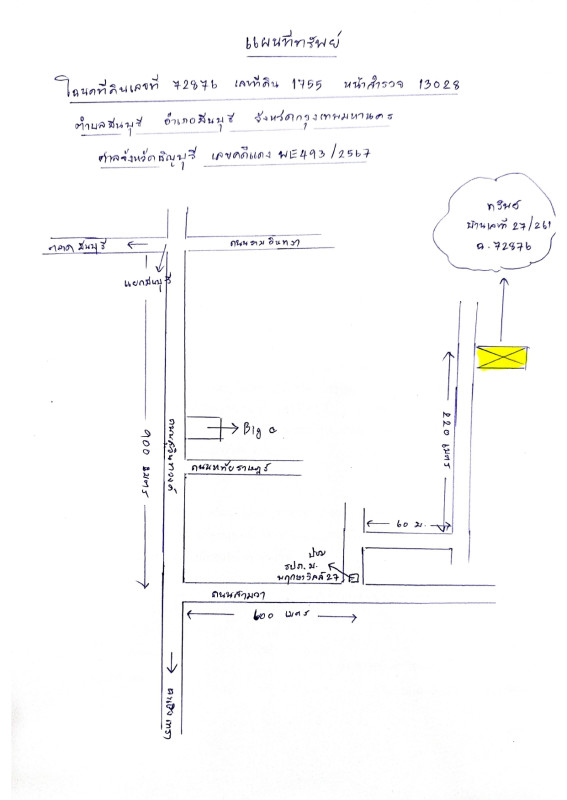 แผนที่ทรัพย์
โฉนดที่ดินเลขที่ 72876 เลขที่ดิน 1755 หน้าสำรวจ 13028
ตำบลมีนบุรี อำเภอมีนบุรี จังหวัดกรุงเทพมหานคร
ศาลจังหวัดธัญบุรี เลขคดีแดง ผE493/2567
ทรัพย์
บ้านเลขที่ 27/261
ฉ.72876
ตลาดมีนบุรี
ถนนรามอินทรา
แยกมีนบุรี
900 เมตร
ถนนสุวินทวงศ์
Big C
ถนนหทัยราษฎร์
220 เมตร
60 ม.
ป้อม
รปภ.ม.
พฤกษาวิลล์ 27
ถนนสามวา
600 เมตร
ฉะเชิงเทรา